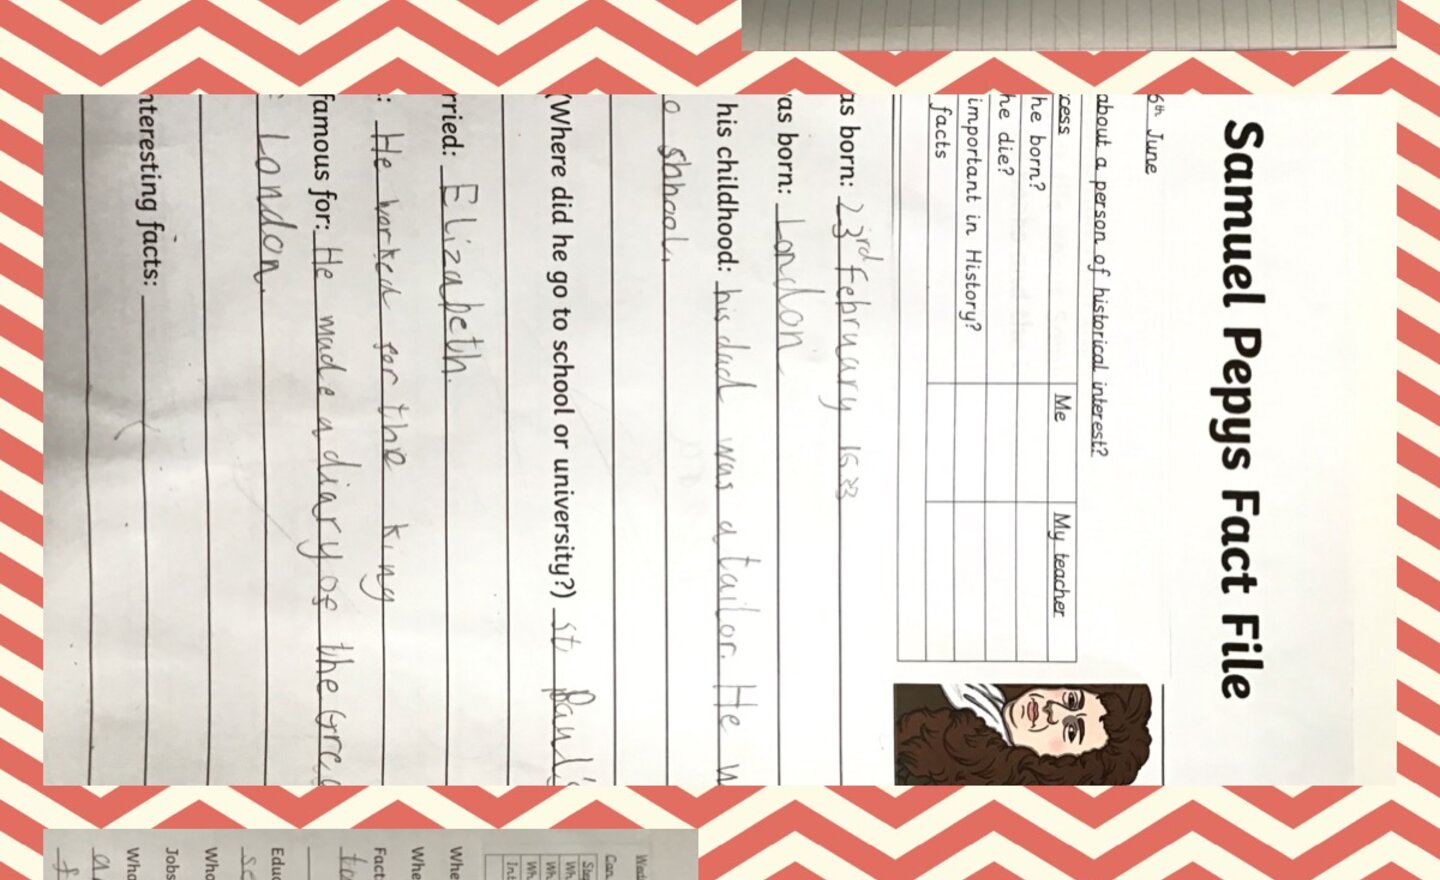 Samuel Pepys Fact File
6th June
about a person of historical interest?
cess Me My teacher
he born?
he die?
important in History?
facts
as born: 23rd February 1633
as born: London
his childhood: his dad was a tailor. He w
o shhool.
(Where did he go to school or university?) St Paul's
rried: Elizabeth.
: He worked for the king
famous for: He made a diary of the Grea
London.
nteresting facts:
Wed
Can
Ste
Wh
Wh
Wh
Int
Whe
Whe
Fact
to
Educ
sc
Who
Jobs
Who
a
f